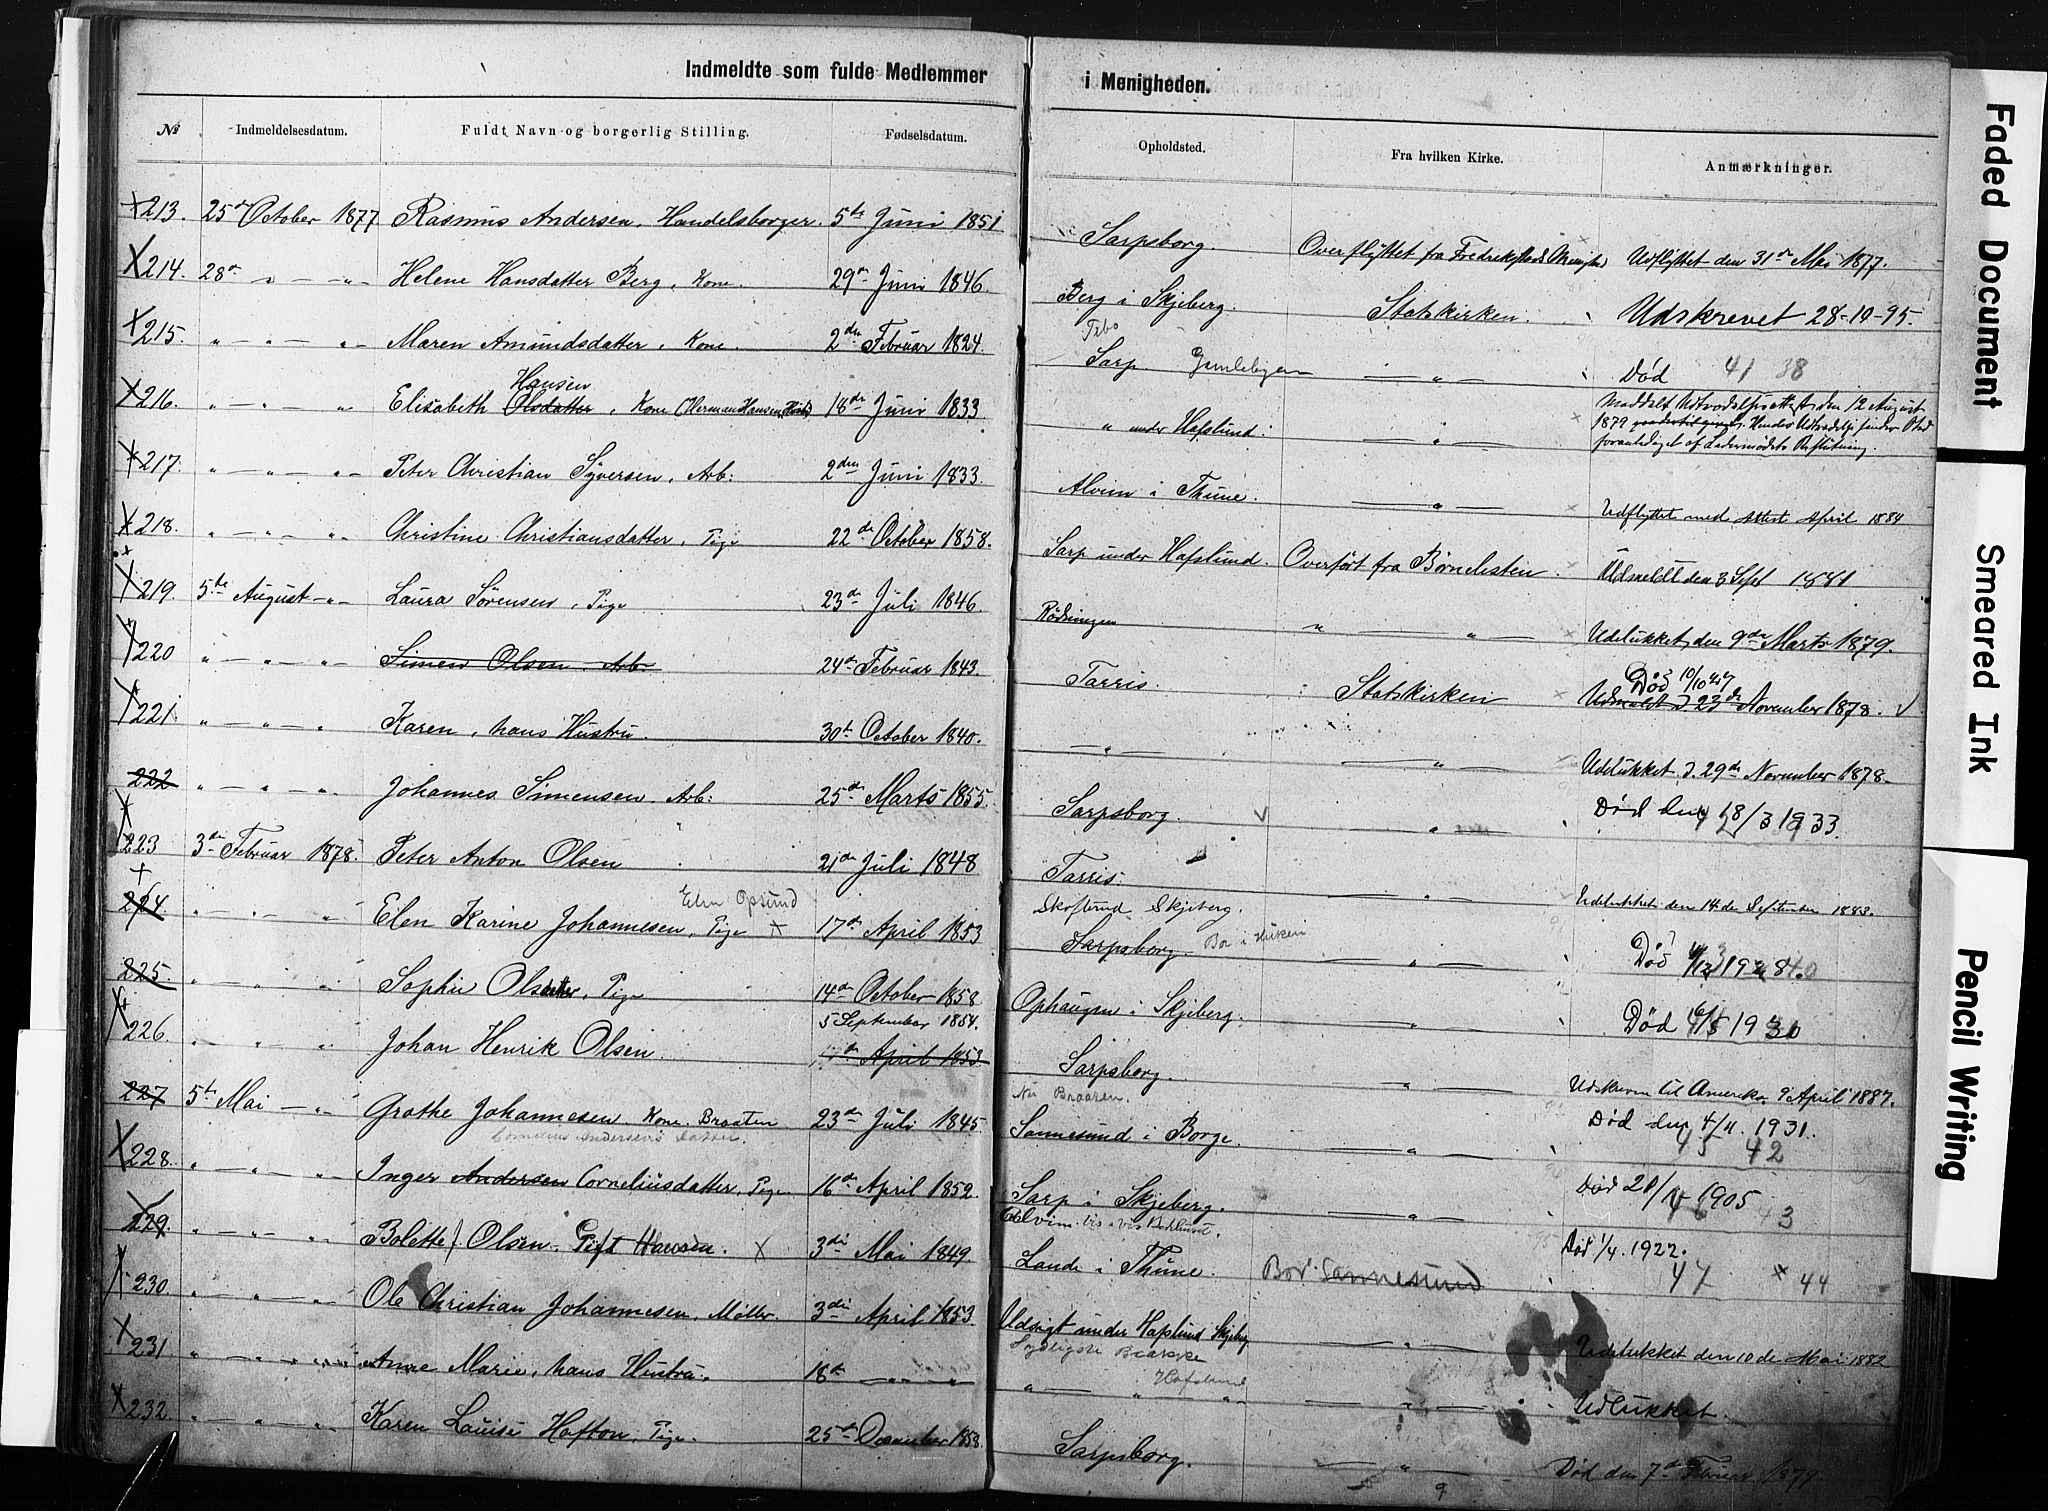 Indmeldte som fulde Medlemmer i Menigheden.
№ Indmeldelsesdatum. Fuldt Navn og borgerlig Stilling. Fødselsdatum. Opholdsted. Fra hvilken Kirke. Anmærkninger.
213. 25de October 1877 Rasmus Andersen, Handelsborger. 5te Juni 1851 Sarpsborg. Overflyttet fra Fredrikstads Menighed Udflyttet den 31te Mai 1877.
214. 28de " — " — Helene Hansdatter Berg, Kone. 29de Juni 1846. Berg i Skjeberg. Statskirken. Udskrevet 28-10-95.
215. " — " — " Maren Amundsdatter, Kone. 2den Februar 1824. Sarp Gamlebyen — " — Død 41 38
Hansen
216. " — " — " Elisabeth Olsdatter, Kone (Herman Hansens) 18de Juni 1833 " under Hafslund. — " — Meddelt Udtrædelsesattest den 12 August
1879
217. " — " — " Peter Christian Syversen, Arb: 2den Juni 1833. Alvim i Thune. — " — Udflyttet med Attest April 1884
218. " — " — " Christine Christiansdatter, Pige 22de October 1858. Sarp under Hafslund. Overført fra Børnelisten. Udmeldt den 3 Sept 1881
219. 5te August — " — Laura Sørensen, Pige 23de Juli 1846. " — " — Udelukket den 9de Marts 1879.
220 " — " — " Simen Olsen Arb. 24de Februar 1843. Tarris. Statskirken Død 10/10 47
Udmeldt d. 23de November 1878. √
221. " — " — " Karen, hans Hustru. 30te October 1840. — " — — " — Udelukket d. 29de November 1878.
222 " — " — " Johannes Simensen, Arb: 25de Marts 1855. Sarpsborg. √ — " — Død den 18/3 1933.
223 3die Februar 1878. Peter Anton Olsen 21de Juli 1848 Tarris. — " — Udelukket den 14de September 1883.
Elen Opsund Skoflund Skjeberg.
224 " — " — " Elen Karine Johannesen, Pige × 17de April 1853 Sarpsborg. Bor i — " — Død
225 " — " — " Sophie Olsdatter, Pige 14de October 1858 Ophaugen i Skjeberg. — " — Død 1930
5 September 1854.
226 " " " Johan Henrik Olsen. April 1853. Sarpsborg. — " — Udskreven til Amerika 9 April 1887.
Nu Braaten.
227 5te Mai — " — Grethe Johannesen Kone. Braaten 23de Juli 1845 Sannesund i Borge. — " — Død den 4/11. 1931.
Cornelius Andersens Datter. 45 42
228. " — " — " Inger Andersen Corneliusdatter, Pige 16de April 1852. Sarp i Skjeberg. — " — Død 1905 43
Alvim vis a vis
229. " — " — " Bolette J. Olsen. Gift Hansen. × 3die Mai 1849. Lande i Thune. Bor Sannesund Død 1/4. 1922.
47 × 44
230 " — " — " Ole Christian Johannesen, Møller. 3die April 1853. Udsigt under Hafslund Skjeberg — " — Udelukket den 10de Mai 1882
231. " — " — " Anne Marie, hans Hustru. 18de " — " " — " Hafslund — " — Udlukket.
232. " — " — " Karen Louise Hafton, Pige. 25de December 1858. Sarpsborg. — " — Død den 7de Februar 1879.
9
Faded Document
Smeared Ink
Pencil Writing